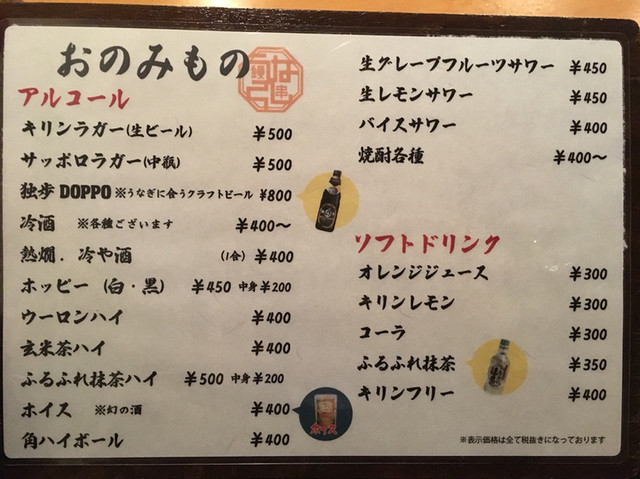 おのみもの
アルコール
キリンラガー(生ビール) ¥500
サッポロラガー(中瓶) ¥500
独歩 DOPPO ※うなぎに合うクラフトビール ¥800
冷酒 ※各種ございます ¥400～
熱燗．冷や酒 (1合) ¥400
ホッピー (白・黒) ¥450 中身¥200
ウーロンハイ ¥400
玄米茶ハイ ¥400
ふるふれ抹茶ハイ ¥500 中身¥200
ホイス ※幻の酒 ¥400
ホイス
角ハイボール ¥400
生グレープフルーツサワー ¥450
生レモンサワー ¥450
バイスサワー ¥400
焼酎各種 ¥400～
ソフトドリンク
オレンジジュース ¥300
キリンレモン ¥300
コーラ ¥300
ふるふれ抹茶 ¥350
キリンフリー ¥400
※表示価格は全て税抜きになっております